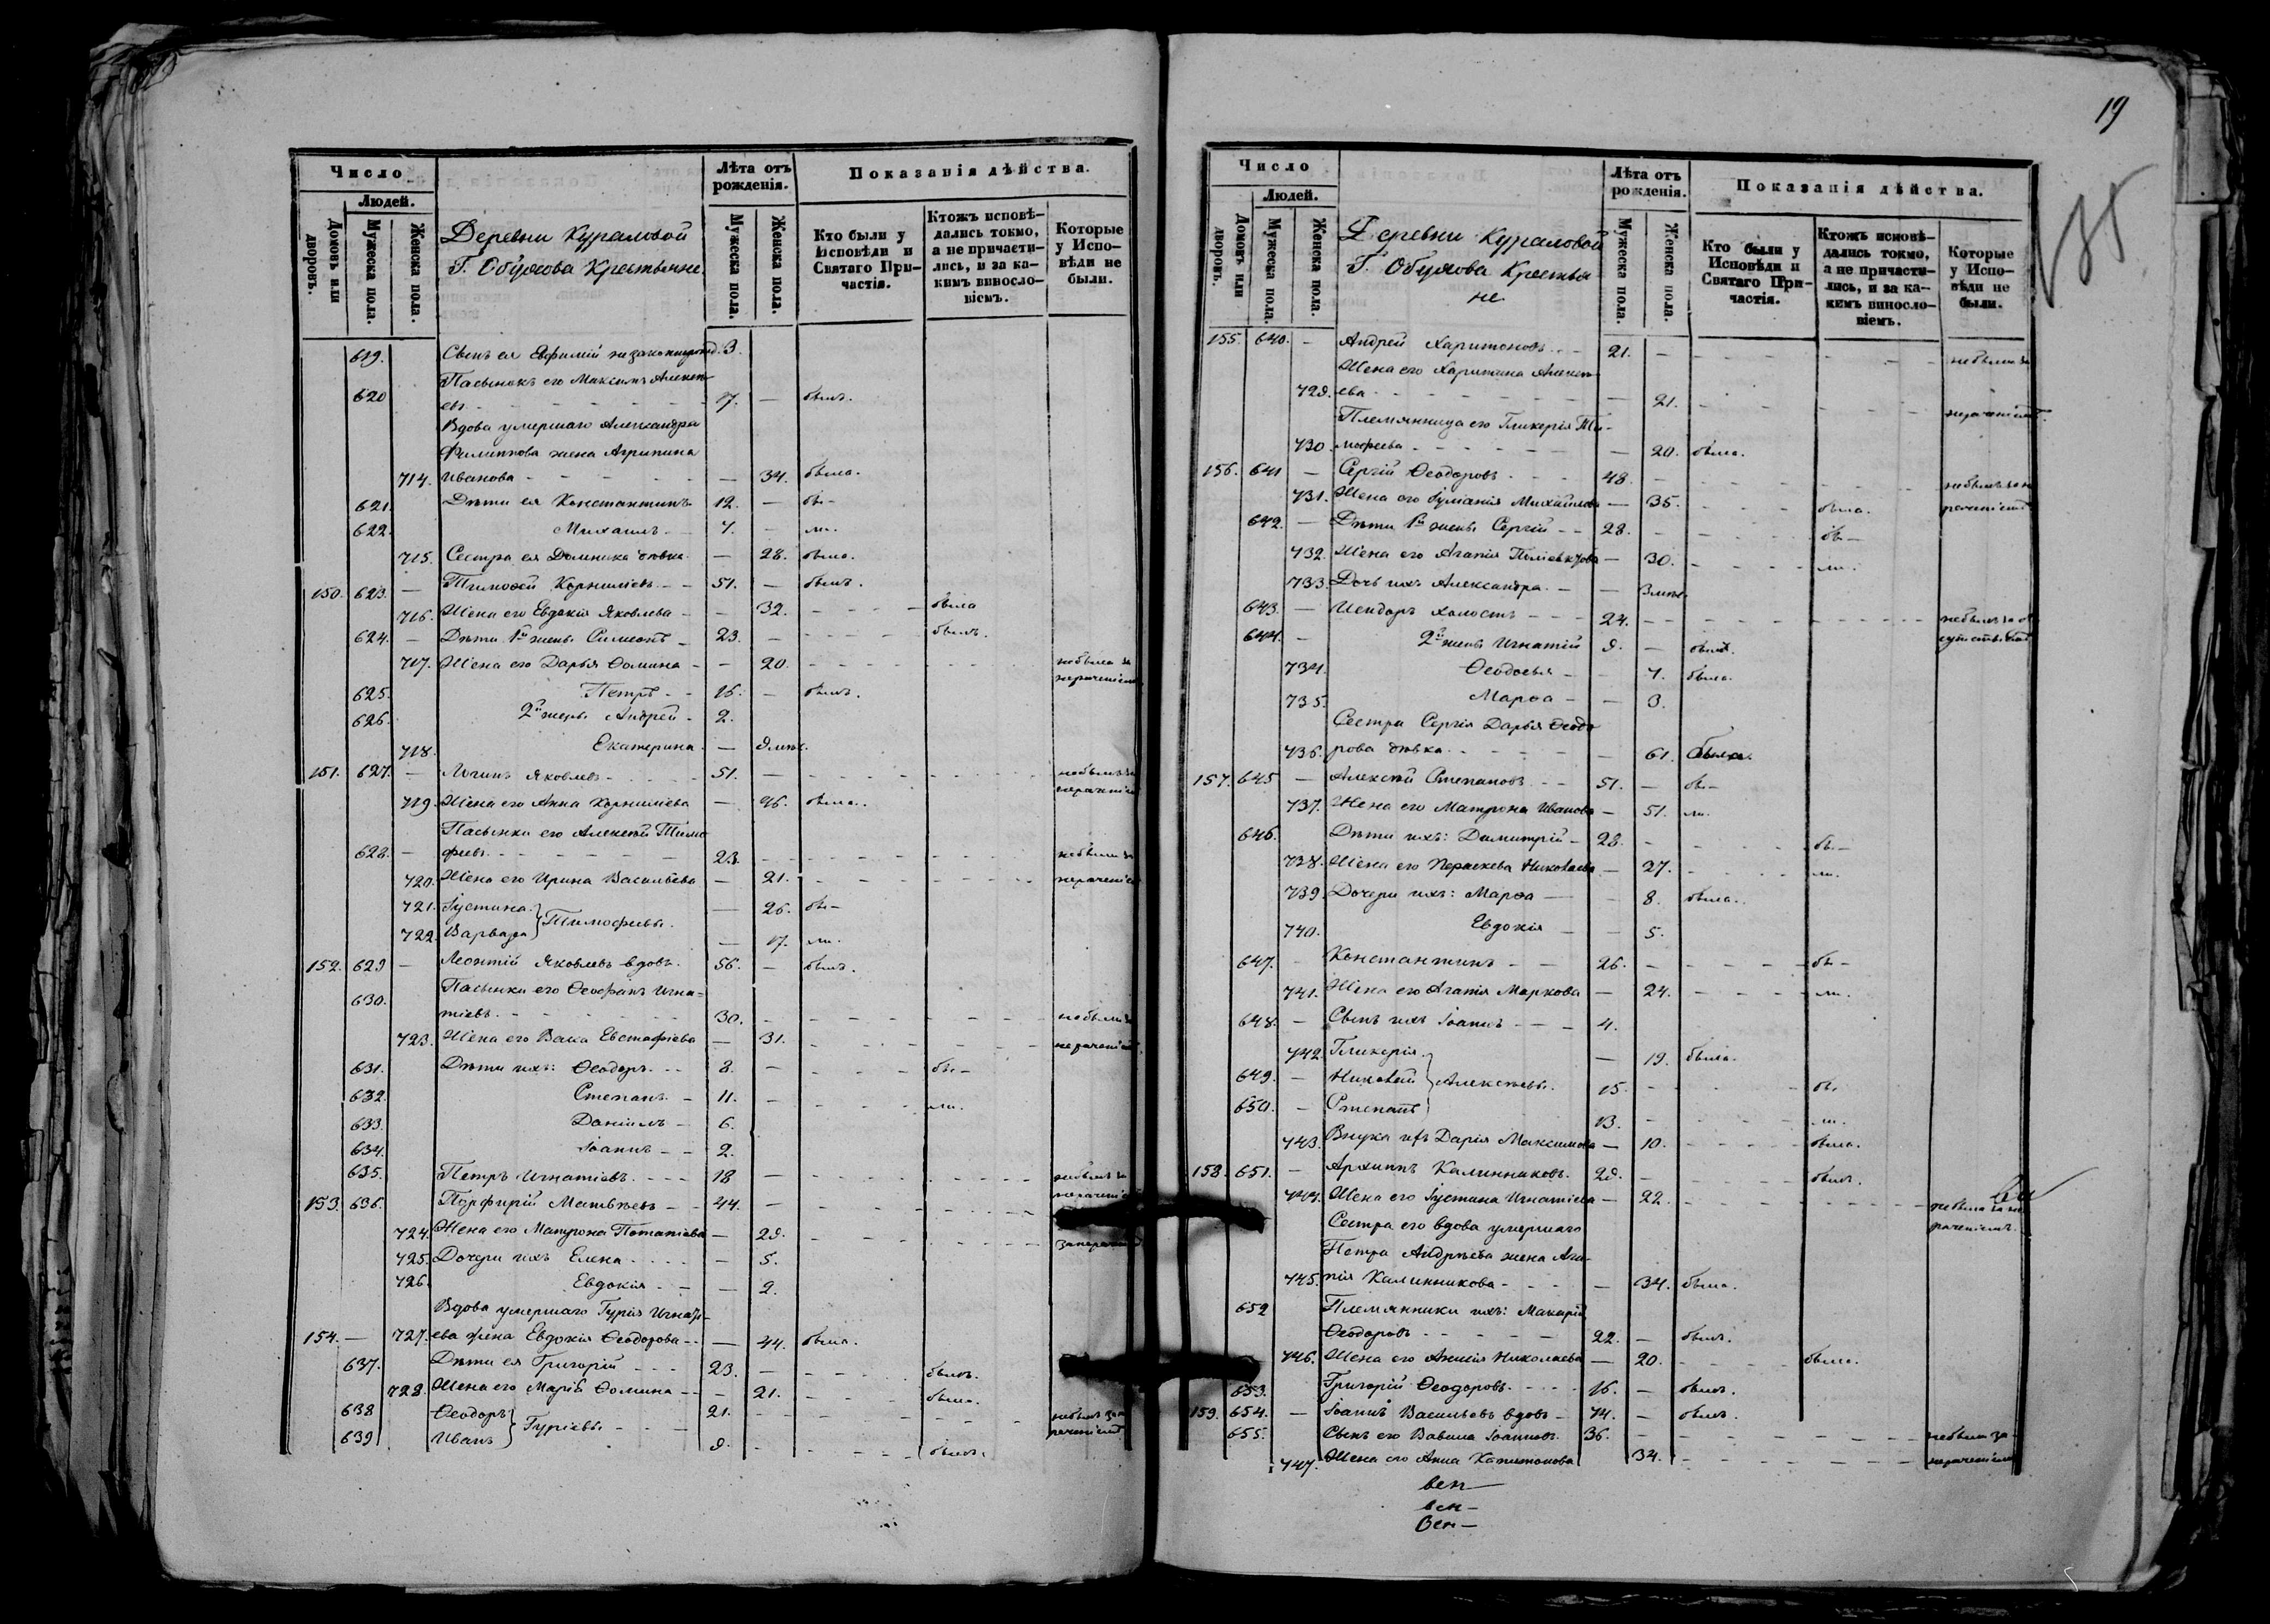 Число
Людей.
Домовъ или дворовъ.
Мужеска пола.
Женска пола.
Деревни Кураловой
Г. Обухова Крестьяне.
Лѣта отъ рожденія.
Мужеска пола.
Женска пола.
Показанія дѣйства.
Кто были у Исповѣди и Святаго Причастія.
Ктожъ исповѣдались токмо, а не причастились, и за какимъ винословіемъ.
Которые у Исповѣди не были.
619. Сынъ ея Евфимій незаконнорожд. 3.
Пасынокъ его Максимъ Алексѣ-
620 евъ - 17. — былъ.
Вдова умершаго Александра
Филиппова жена Агрипина
714. Иванова - — 34. была.
621. Дѣти ея Константинъ 12. — бы-
622. Михаилъ - 7. — ли.
715. Сестра ея Домника дѣвка. — 28. была.
150. 623. — Тимофей Корниліевъ - 51. — былъ.
716. Жена его Евдокія Яковлева - — 32. - была
624. — Дѣти 1й жены Симеонъ - 23. — - былъ.
717. Жена его Дарья Ѳомина - — 20. - небыла за нераченіемъ
625. Петръ - 16. — былъ.
626. 2й жены Андрей - 2.
718. Екатерина. —
151. 627. — Логинъ Яковлевъ - 51. — - небылъ за нераченіемъ
719. Жена его Анна Корниліева — 46. была.
Пасынки его Алексѣй Тимо-
628. — феевъ - 23. - небыли за
720. Жена его Ирина Васильева — 21. - нераченіемъ
721. Іустина — 26. бы-
722. Варвара } Тимофеевы. — 17. ли.
152. 629 — Леонтій Яковлевъ вдовъ. 56. — былъ.
630. Пасынки его Ѳеофанъ Игна-
тіевъ. - 30. - небыли за
723. Жена его Васса Евстафіева — 31. - нераченіемъ
631. Дѣти ихъ: Ѳеодоръ. - 8. — - бы-
632. Степанъ. - 11. — - ли.
633. Даніилъ - 6.
634. Іоаннъ - 2.
635. Петръ Игнатіевъ. - 18 — - небылъ за нераченіемъ
153. 636. Порфирій Матвѣевъ - 44. —
724. Жена его Матрона Потапіева — 29. - занераченіемъ
725. Дочери ихъ Елена - — 5.
726. Евдокія - — 2.
Вдова умершаго Гурія Игнаті-
154. — 727. ева жена Евдокія Ѳеодорова - — 44. была.
637. Дѣти ея Григорій - 23. — - былъ.
728. Жена его Марія Ѳомина - — 21. - была.
638 Ѳеодоръ 21. - небылъ за нераченіемъ
639 Иванъ } Гуріевы - 9. - былъ.
19
35
Число
Людей.
Домовъ или дворовъ.
Мужеска пола.
Женска пола.
Деревни Кураловой
Г. Обухова Крестья
не
Лѣта отъ рожденія.
Мужеска пола.
Женска пола.
Показанія дѣйства.
Кто были у Исповѣди и Святаго Причастія.
Ктожъ исповѣдались токмо, а не причастились, и за какимъ винословіемъ.
Которые у Исповѣди не были.
155. 640. — Андрей Харитоновъ - 21. — - небыли за
Жена его Харитина Алексѣ-
729. ева - — 21. - нераченіемъ
Племянница его Гликерія Ти-
730 мофеева - — 20. была.
156. 641 — Сергій Ѳеодоровъ - 48. — - небылъ за не раченіемъ
731. Жена его Іуліанія Михайлова — 35. - была.
642. — Дѣти 1й жены Сергій - 28. — - бы-
732. Жена его Агапія — 30. - ли.
733. Дочь ихъ Александра. - —
643. — Исидоръ холостъ - 24. — - небылъ за от сутствіемъ
644. — 2й жены Игнатій 9. — былъ.
734. Ѳеодосья - — 7. была.
735. Марѳа - — 3.
Сестра Сергія Дарья Ѳеодо
736. рова дѣвка. - — 61. была.
157. 645 — Алексѣй Степановъ - 51. — бы-
737. Жена его Матрона Иванова — 51. ли.
646. Дѣти ихъ: Димитрій - 28. — - бы-
738. Жена его Параскева Николаева — 27. - ли.
739. Дочери ихъ: Марѳа — 8. была.
740. Евдокія — 5.
647. — Константинъ - 26. — - бы-
741. Жена его Агапія Маркова — 24. - ли.
648. — Сынъ ихъ Іоаннъ - 4.
742. Гликерія — 19. была.
649. — Николай } Алексѣевы. 15. — - бы
650. — Степанъ 13. — - ли.
743. Внука ихъ Дарія Максимова — 10. - была.
158. 651. — Архиппъ Калинниковъ. 29. — - былъ.
744. Жена его Іустина Игнатіева — 22. - небыла за не раченіемъ.
Сестра его вдова умершаго
Петра Андрѣева жена Ага-
745. пія Калинникова - — 34. была.
652 Племянники ихъ: Макарій
Ѳеодоровъ - 22. — былъ.
746. Жена его Анисія Николаева — 20. - была.
653. Григорій Ѳеодоровъ. - 16. — былъ.
159. 654. — Іоаннъ Васильевъ вдовъ - 74. — былъ.
655. Сынъ его Вавила Іоанновъ. 36. — - небыли за
747. Жена его Анна Капитонова 34. - нераченіемъ